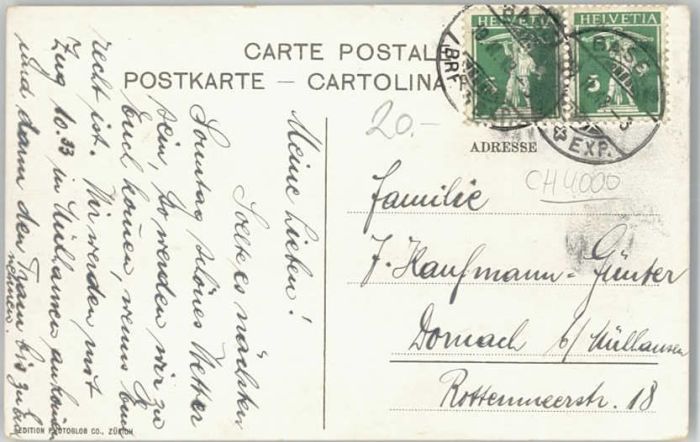 CARTE POSTALE
POSTKARTE – CARTOLINA
HELVETIA
HELVETIA
5
BASEL
BRF. EXP.
20.-
ADRESSE
CH 4000
Familie
J. Kaufmann-Günter
Dornach b/ Mülhausen
Rottenmeerstr. 18
Meine Lieben!
Sollte es nächsten
Sonntag schönes Wetter
sein, so werden wir zu
Euch kommen, wenns Euch
recht ist. Wir werden mit
Zug 10.33 in Mülhausen ankommen
und dann den Tram bis zu Euch
nehmen.
EDITION PHOTOGLOB CO., ZÜRICH